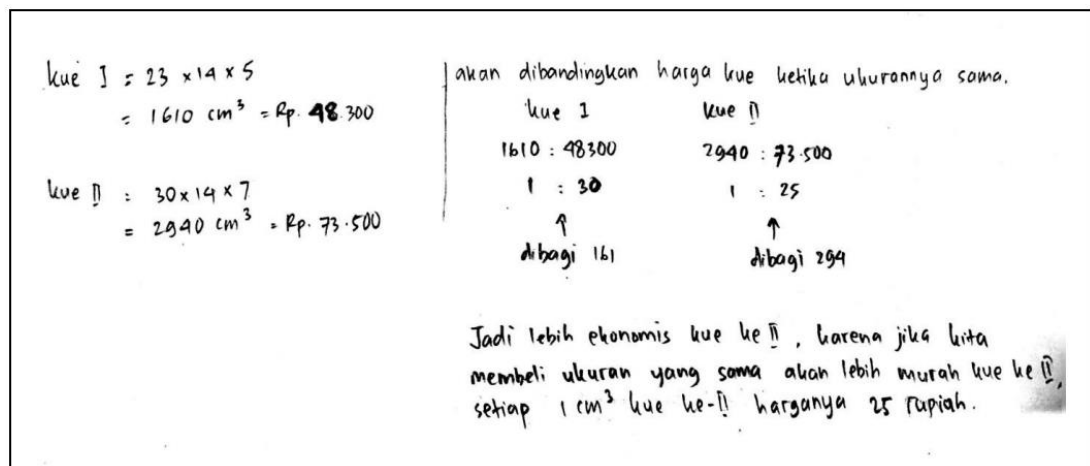 kue I = 23 x 14 x 5
= 1610 cm³ = Rp. 48.300
kue II = 30 x 14 x 7
= 2940 cm³ = Rp. 73.500
akan dibandingkan harga kue ketika ukurannya sama.
kue I kue II
1610 : 48300 2940 : 73.500
1 : 30 1 : 25
↑ ↑
dibagi 161 dibagi 294
Jadi lebih ekonomis kue ke II, karena jika kita
membeli ukuran yang sama akan lebih murah kue ke II,
setiap 1 cm³ kue ke-II harganya 25 rupiah.